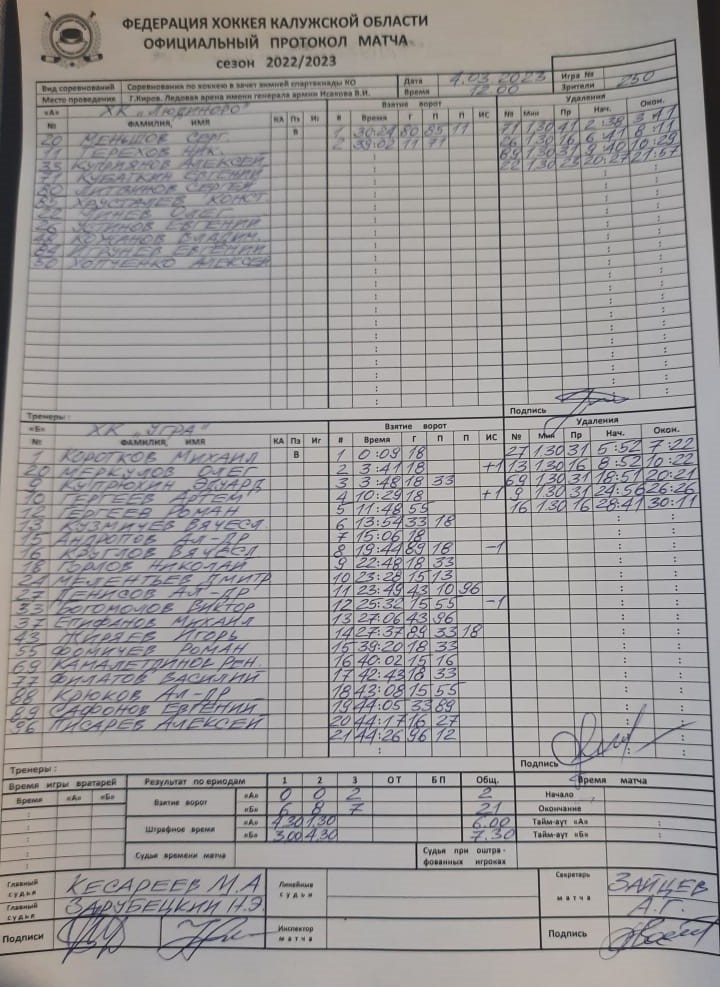 ФЕДЕРАЦИЯ ХОККЕЯ КАЛУЖСКОЙ ОБЛАСТИ
ОФИЦИАЛЬНЫЙ ПРОТОКОЛ МАТЧА
сезон 2022/2023
Вид соревнований Соревнования по хоккею в зачет зимней спартакиады КО Дата 4.03.2023 Игра №
Место проведения Г.Киров. Ледовая арена имени генерала армии Исакова В.И. Время 12.00 Зрители 250
«А» ХК „Людиново" Взятие ворот Удаления
№ ФАМИЛИЯ, ИМЯ КА Пз Иг # Время Г П П ИС № Мин Пр Нач. Окон.
20 МЕНЬШОВ СЕРГ. В 1 30:24 80 85 11 71 1,30 41 2:38 3:41
ТЕРЕХОВ НИК. 2 39:02 11 71 26 1,30 16 6:41 8:11
33 КУПРЯНОВ АЛЕКСЕЙ 89 1,30 31 9:40 10:29
71 КУБАТКИН ЕВГЕНИЙ 22 1,30 23 20:27 21:57
80 ЛИТВИНОВ СЕРГЕЙ
ХРУСТАЛЕВ КОНСТ.
22 ЛИНЕВ ОЛЕГ
26 УСТИНОВ ЕВГЕНИЙ
КОЖАНОВ ВЛАДИМ.
ИГРУНЕВ ЕВГЕНИЙ
50 ХОПЧЕНКО АЛЕКСЕЙ
Тренеры: Подпись
«Б» ХК „УГРА" Взятие ворот Удаления
№ ФАМИЛИЯ, ИМЯ КА Пз Иг # Время Г П П ИС № Мин Пр Нач. Окон.
1 КОРОТКОВ МИХАИЛ В 1 0:09 18 27 1.30 31 5:52 7:22
20 МЕРКУЛОВ ОЛЕГ 2 3:41 18 +1 13 1.30 16 8:52 10:22
9 КУПРЮХИН ЭДУАРД 3 3:48 18 33 69 1.30 31 18:51 20:21
10 ГЕРГЕЕВ АРТЕМ 4 10:29 18 +1 9 1.30 31 24:56 26:26
12 ГЕРГЕЕВ РОМАН 5 11:48 55 16 1.30 16 28:41 30:11
13 КУЗМИЧЕВ ВЯЧЕСЛ. 6 13:54 33 18
15 АНДРОПОВ АЛ-ДР 7 15:06 18
16 КРУГЛОВ ВЯЧЕСЛ 8 19:44 89 18 -1
18 ГОРЛОВ НИКОЛАЙ 9 22:48 18 33
24 МЕЛЕНТЬЕВ ДМИТР 10 23:28 15 13
27 ДЕНИСОВ АЛ-ДР 11 23:49 43 10 96
33 БОГОМОЛОВ ВИКТОР 12 25:32 15 55 -1
37 ЕПИФАНОВ МИХАИЛ 13 27:06 43 96
43 ЖИРЯЕВ ИГОРЬ 14 27:37 89 33 18
55 ФОМИЧЕВ РОМАН 15 39:20 18 33
69 КАМАЛЕТДИНОВ РЕН. 16 40:02 15 16
77 ФИЛАТОВ ВАСИЛИЙ 17 42:43 18 33
88 КРЮКОВ АЛ-ДР 18 43:08 15 55
89 САФОНОВ ЕВГЕНИЙ 19 44:05 33 89
96 ПИСАРЕВ АЛЕКСЕЙ 20 44:17 16 27
21 44:26 96 12
Тренеры: Подпись
Время игры вратарей Результат по периодам 1 2 3 ОТ БП Общ. Время матча
Время «А» «Б» Взятие ворот «А» 0 0 2 2 Начало
«Б» 6 8 7 21 Окончание
Штрафное время «А» 4.30 1.30 6.00 Тайм-аут «А»
«Б» 3.00 4.30 7.30 Тайм-аут «Б»
Судьи времени матча Судьи при оштрафованных игроках
Главный судья КЕСАРЕЕВ М.А Линейные судьи Секретарь матча ЗАЙЦЕВ А.Г.
Главный судья ЗАРУБЕЦКИЙ Н.Э.
Подписи Инспектор матча Подпись